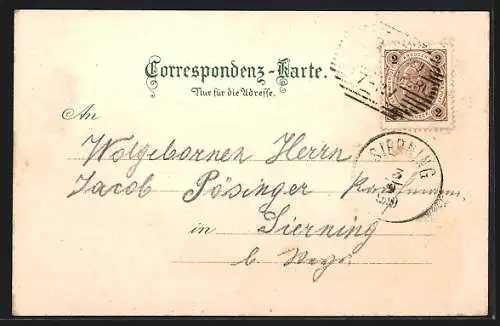 Correspondenz-Karte.
Nur für die Adresse.
2 2
KREUZER
2 2
SIERNING
An
Wolgebornen Herrn
Jacob Pösinger Kaufmann
in Sierning
b. Steyr